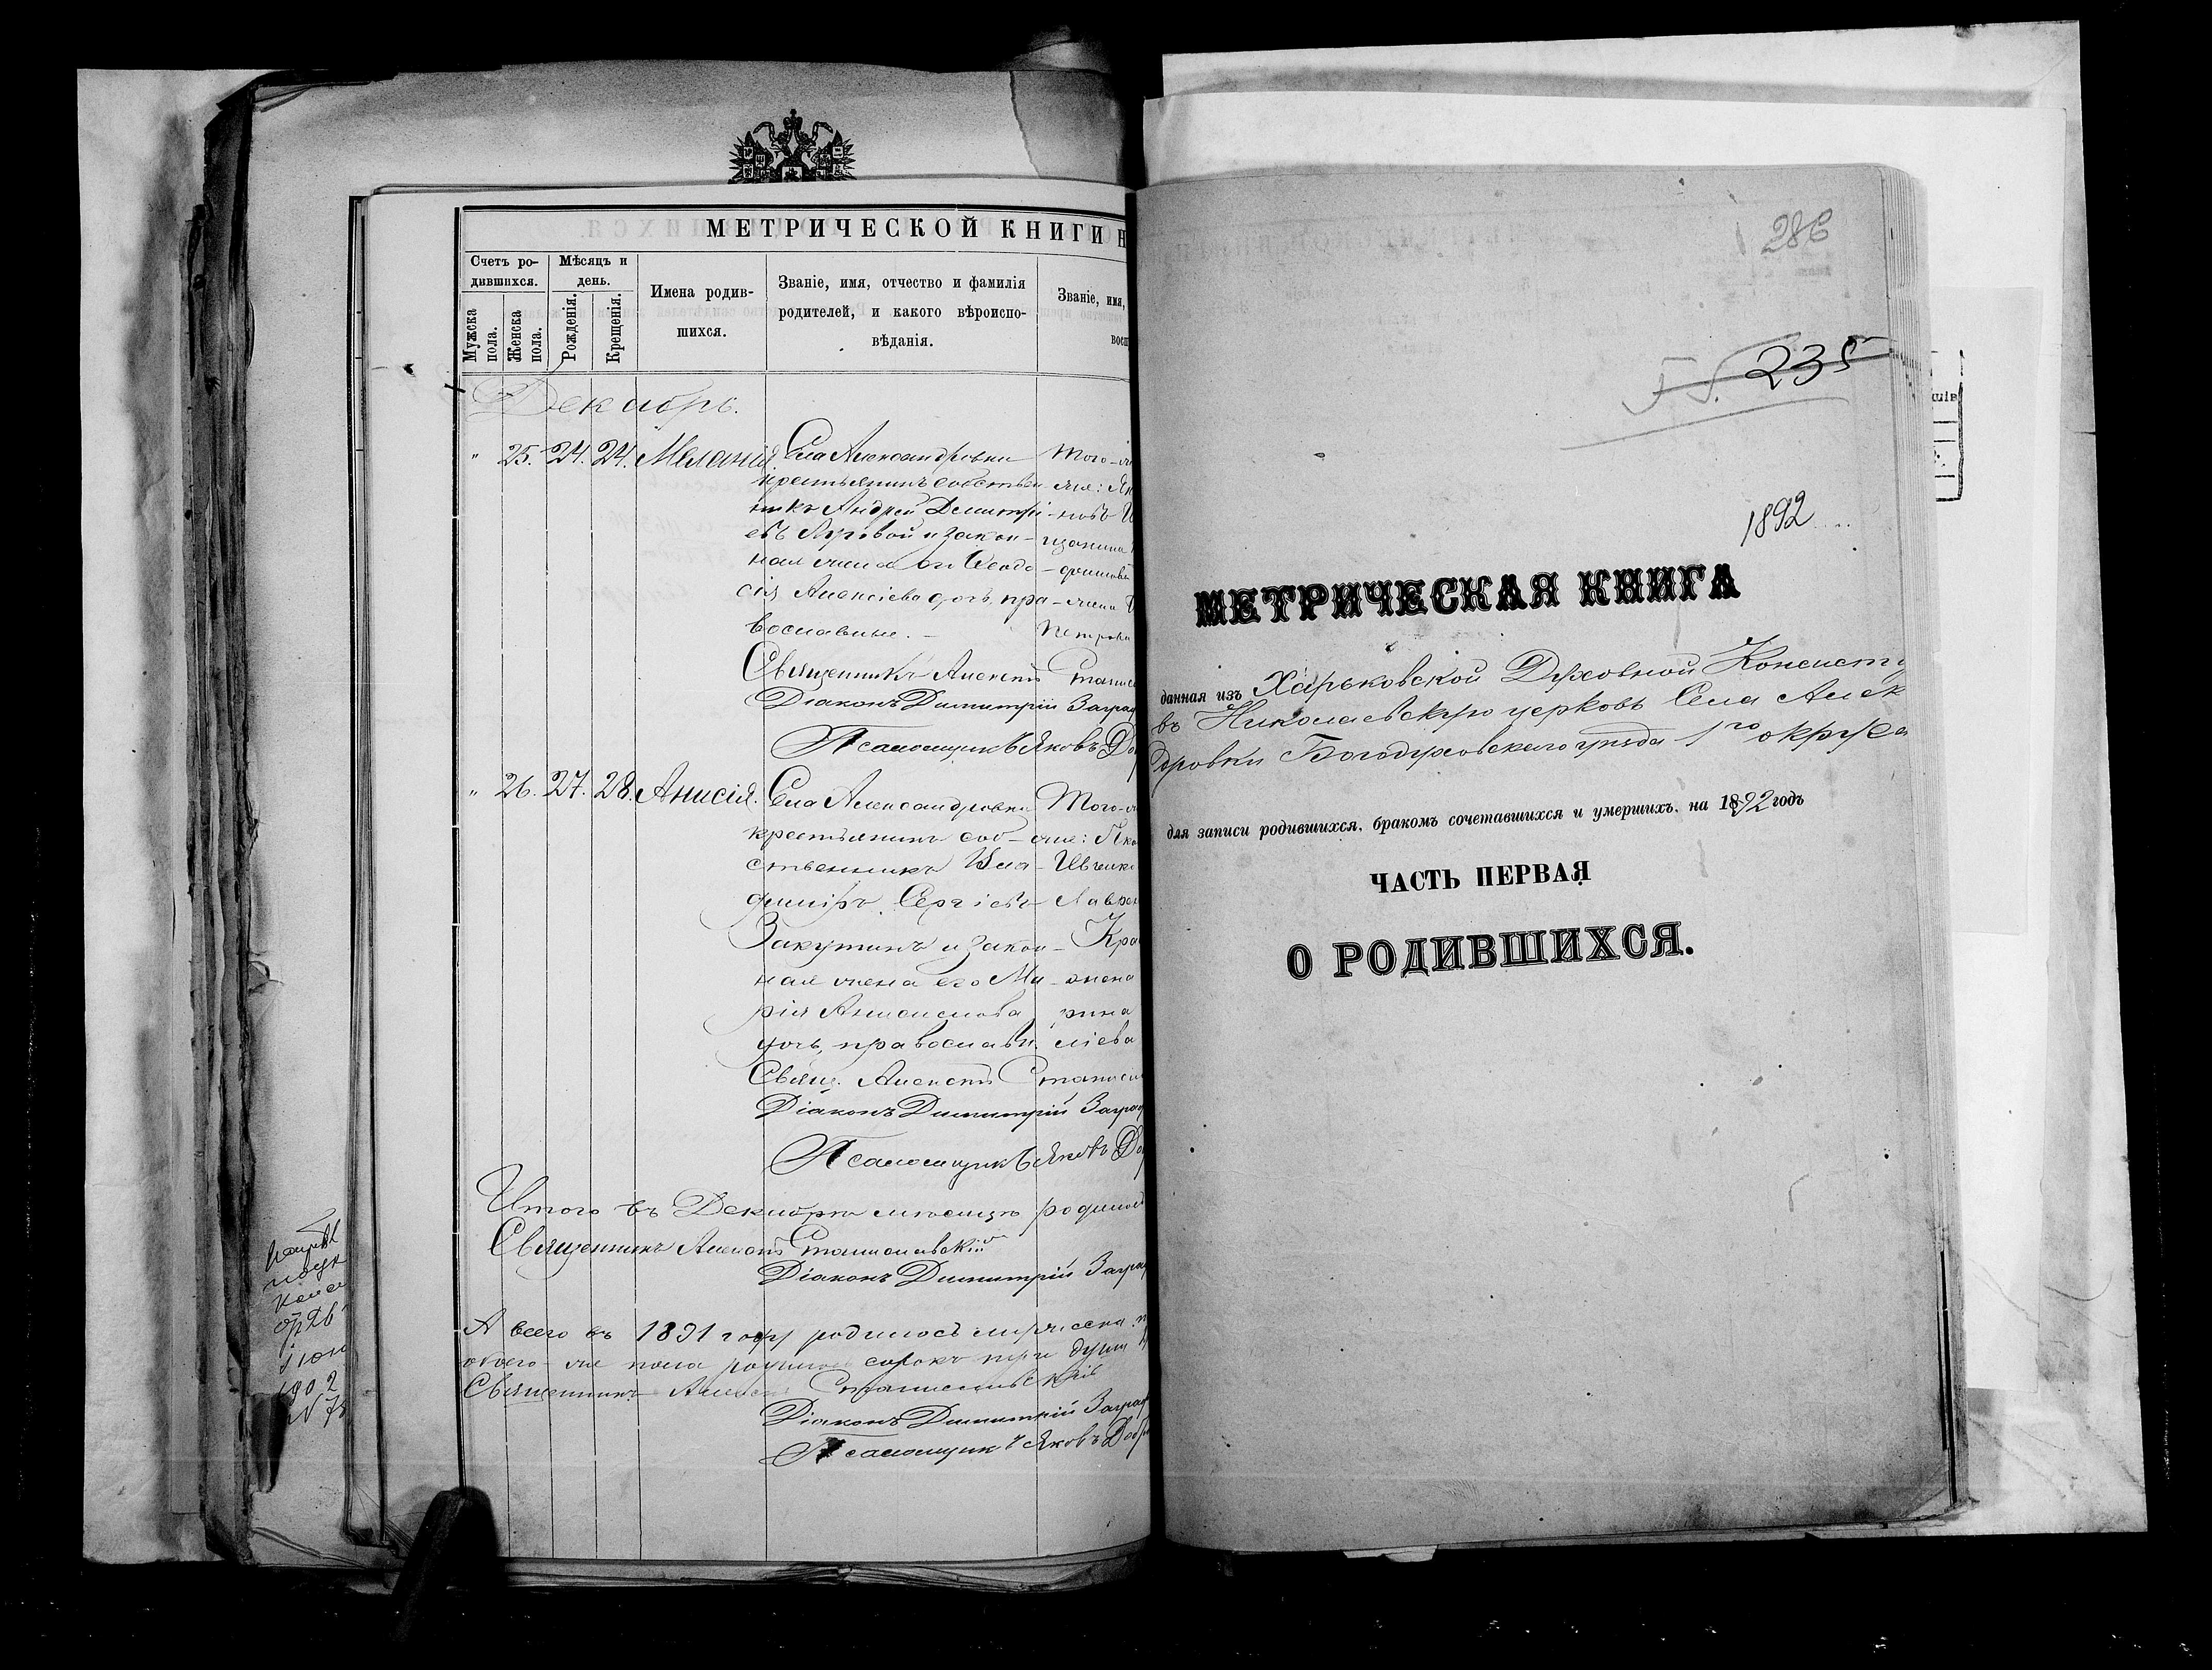 МЕТРИЧЕСКОЙ КНИГИ Н
Счетъ ро-
дившихся.
Мѣсяцъ и
день.
Мужска
пола.
Женска
пола.
Рожденія.
Крещенія.
Имена родив-
шихся.
Званіе, имя, отчество и фамилія
родителей, и какого вѣроиспо-
вѣданія.
Званіе, имя,
восп
Декабрь.
" 25. 24. 24. Меланія. Села Александровки
крестьянинъ собствен
никъ Андрей Димитрі
евъ Луговой и закон-
ная жена его Ѳеодо
сія Алексіева дочь, пра
вославные.
Того-ж
же: Ян
новъ И
гданина
жена
Петрова
Священникъ Алексій Станис
Діаконъ Димитрій Заград
Псаломщикъ Яковъ До
" 26. 27. 28. Анисія. Села Александровки
крестьянинъ соб-
ственникъ Вла
димір Сергіевъ
Закутинъ и закон-
ная жена его Ма
рія Анисимова
дочь, православн.
Того-ж
же:
Ивченк
Лаврен
Кра
жена
рина
сіева
Свящ. Алексій Станисла
Діаконъ Димитрій Заград
Псаломщикъ Яковъ До
Итого въ Декабрѣ мѣсяцѣ родилос
Священникъ Алексій Станиславскій
Діаконъ Димитрій Заград
А всего въ 1891 году родилось мужеска п
обоего-же пола родилось сорокъ три души
Священникъ Алексій Станиславскій
Діаконъ Димитрій Заград
Псаломщикъ Яковъ Добр
286
235
1892
МЕТРИЧЕСКАЯ КНИГА
данная изъ Харьковской Духовной Консисто
въ Николаевскую церковь Села Алек
дровки Богодуховскаго уѣзда 1го округа
для записи родившихся, бракомъ сочетавшихся и умершихъ, на 1892 годъ
ЧАСТЬ ПЕРВАЯ
О РОДИВШИХСЯ.